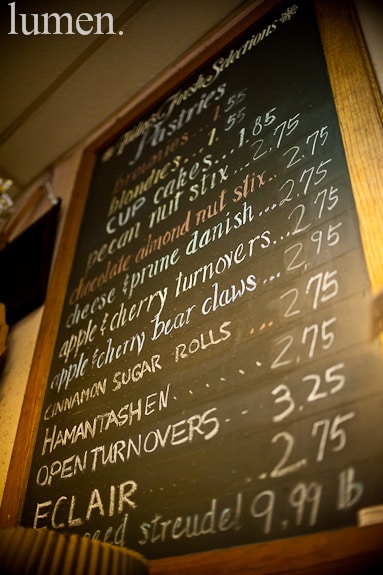 lumen.
Today's Fresh Selections
Pastries
Brownies...1.55
blondies...1.55
CUP cakes...1.85
pecan nut stix...2.75
chocolate almond nut stix..2.75
cheese & prune danish...2.75
apple & cherry turnovers...2.75
apple & cherry bear claws...2.95
CINNAMON SUGAR ROLLS....2.75
HAMANTASHEN......2.75
OPEN TURNOVERS..3.25
ECLAIR...2.75
streudel 9.99 lb